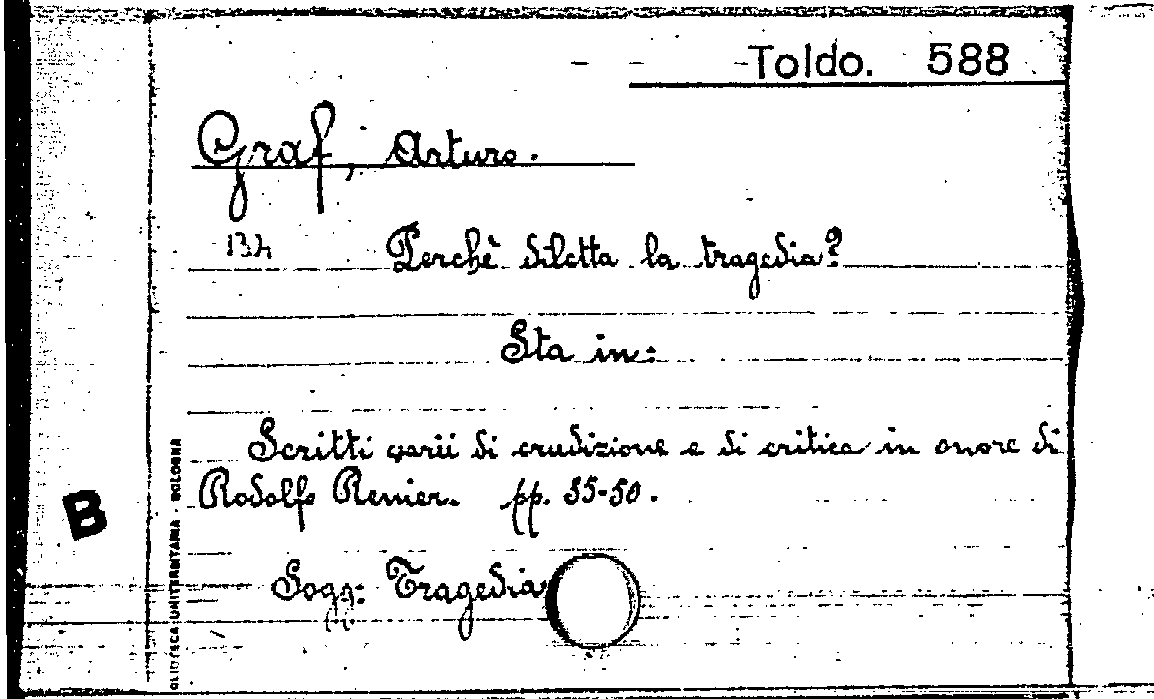 Toldo. 588
Graf, Arturo.
Perchè diletta la tragedia?
Sta in:
Scritti varii di erudizione e di critica in onore di
Rodolfo Renier. pp. 35-50.
Sogg: Tragedia
B
BLIOTECA UNIVERSITARIA - BOLOGNA